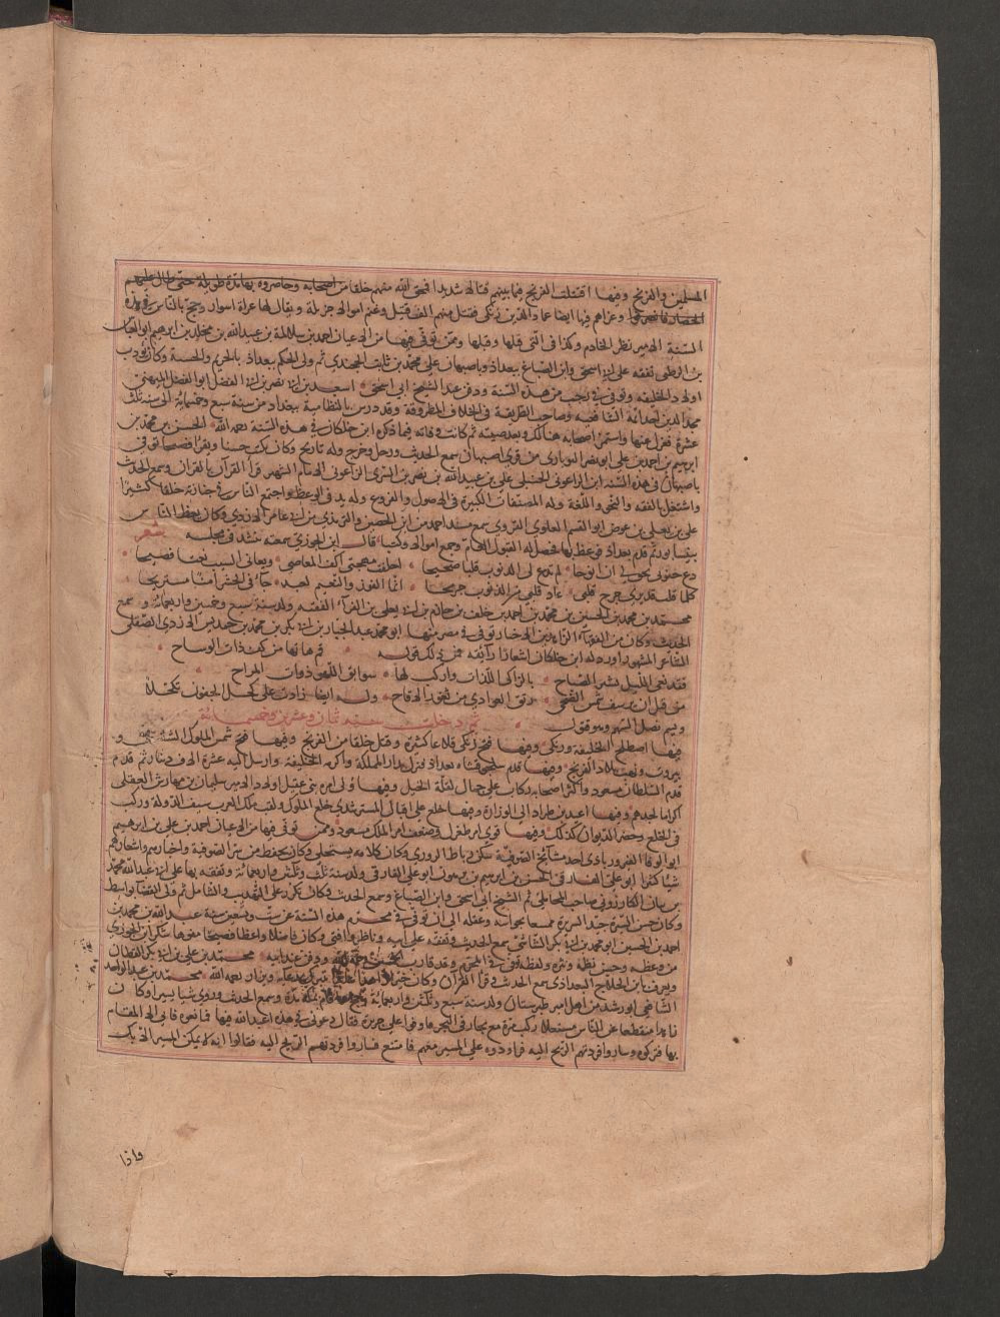 المسلمين والفرنج وفيها اقتتلت الفرنج فيما بينهم قتالا شديدا فمحق الله منهم خلقا من اصحابه وحاصروه بها مدة طويلة حتى طال عليهم
الحصار وغزاهم فيها ايضا عماد الدين زنكي فقتل منهم الف قتيل وغنم اموالا جزيلة ويقال لها غزاة اسوار وحج بالناس في هذه
السنة الامير نظر الخادم وكذا في التي قبلها وقبلها وممن توفي فيها من الاعيان احمد بن سلامة بن عبيدالله بن مخلد بن ابرهيم ابو العباس
بن الرطبي تفقه على ابي اسحق وابن الصباغ ببغداد وباصبهان على محمد بن ثابت الخجندي ثم ولي الحكم ببغداد بالحريم والحسبة وكان يؤدب
اولاد الخليفة وتوفي في رجب من هذه السنة ودفن عند الشيخ ابي اسحق اسعد بن ابي نصر بن ابي الفضل ابو الفضل الميهني
مجد الدين احد ائمة الشافعية وصاحب الطريقة في الخلاف المطروقة وقد درس بالنظامية ببغداد من سنة سبع وخمسمائة الى سنة ثلث
عشرة فعزل عنها واستمر اصحابه هنالك وبعد صيته ثم كانت وفاته فيما ذكره ابن خلكان في هذه السنة رحمه الله الحسن بن محمد بن
ابرهيم بن احمد بن علي ابو نصر اليوناري من قرى اصبهان سمع الحديث ورحل وخرج وله تاريخ وكان يكتب حسنا ويقرأ فصيحا توفي
باصبهان في هذه السنة ابن الزاغوني الحنبلي علي بن عبيدالله بن نصر بن السري الزاغوني الامام الشهير قرأ القرآن بالقراءات وسمع الحديث
واشتغل بالفقه والنحو واللغة وله المصنفات الكثيرة في الاصول والفروع وله يد في الوعظ واجتمع الناس في جنازته خلقا كثيرا
علي بن يعلى بن عوض ابو القسم العلوي الهروي سمع مسند احمد من ابن الحصين والترمذي من ابي عامر الازدي وكان يعظ الناس
بنيسابور ثم قدم بغداد فوعظ بها فحصل له القبول التام وجمع اموالا وكتبا قال ابن الجوزي سمعته ينشد في مجلسه شعر
احلت مهجتي اكف المعاصي
كلما قلت قد بري جرح قلبي عاد قلبي من الذنوب جريحا انما الفوز والنعيم لعبد جاء في الحشر آمنا مستريحا
محمد بن محمد بن الحسين بن محمد بن احمد بن خلف بن حازم بن ابي يعلى بن الفراء الفقيه ولد سنة سبع وخمسين واربعمائة وسمع
الحديث وكان من الفقهاء الزاهدين الاخيار توفي في صفر منها ابو محمد عبد الجبار بن ابي بكر بن محمد بن حمديس الازدي الصقلي
الشاعر المشهور اورد له ابن خلكان اشعارا رائقة فمن ذلك قوله قم هاتها من كف ذات الوشاح
فقد نعى الليل بشير الصباح باكر الى اللذات واركب لها سوابق اللهو ذوات المراح
من قبل ان ترشف شمس الضحى ريق الغوادي من ثغور الاقاح وله ايضا زادت على كحل الجفون تكحلا
ويسم نصل السهم وهو قتول ثم دخلت سنة ثمان وعشرين وخمسمائة
فيها اصطلح الخليفة وزنكي وفيها فتح زنكي قلاعا كثيرة وقتل خلقا من الفرنج وفيها فتح شمس الملوك الشقيف تيرون و
بيروت ونهب بلاد الفرنج وفيها قدم سلجوقشاه بغداد فنزل بدار المملكة واكرمه الخليفة وارسل اليه عشرة الاف دينار ثم قدم
قدم السلطان مسعود واكثر اصحابه ركاب على جمال لقلة الخيل وفيها ولي امرة بني عقيل اولاد الامير سليمان بن مهارش العقيلي
اكراما لجدهم وفيها اعيد بن طراد الى الوزارة وفيها خلع على اقبال المسترشدي خلع الملوك ولقب ملك العرب سيف الدولة وركب
في الخلع وحضر الديوان كذلك وفيها قوي امر طغرل وضعف امر الملك مسعود وممن توفي فيها من الاعيان احمد بن علي بن ابرهيم
ابو الوفا الفيروزبادي احد مشائخ الصوفية سكن رباط الزوزني وكان كلامه يستحلى وكان يحفظ من سير الصوفية واخبارهم واشعارهم
شيئا كثيرا ابو علي الفارقي الحسن بن ابرهيم بن برهون ابو علي الفارقي ولد سنة ثلث وثلثين واربعمائة وتفقه بها على ابي عبدالله محمد
بن بيان الكازروني صاحب المحاملي ثم الشيخ ابي اسحق وابن الصباغ وسمع الحديث وكان يكرر على المهذب والشامل ثم ولي القضاء بواسط
وكان حسن السيرة جيد السريرة ممتعا بحواسه وعقله الى ان توفي في محرم هذه السنة عن ست وتسعين سنة عبدالله بن محمد بن
احمد بن الحسين ابو محمد بن ابي بكر الشاشي سمع الحديث وتفقه على ابيه وناظر وافتى وكان فاضلا واعظا فصيحا مفوها شكر ابن الجوزي
من وعظه وحسن نظمه ونثره ولفظه توفي في المحرم وقد قارب الخمسين ودفن عند ابيه محمد بن علي بن ابي بكر القطان
ويعرف بابن الحلاج البغدادي سمع الحديث وقرأ القرآن وكان خيرا زاهدا عابدا يتبرك بدعائه ويزار رحمه الله محمد بن عبد الواحد
الشافعي ابو رشد من اهل آمل طبرستان ولد سنة سبع وثلثين واربعمائة وحج واقام بمكة مدة وسمع الحديث وروى شيئا يسيرا وكان
زاهدا منقطعا عن الناس مشتغلا ركب مرة مع تجار في البحر فاوفوا على جزيرة فقال دعوني في هذه اعبدالله فيها فمانعوه فابى الا المقام
بها فتركوه وساروا فردتهم الريح اليه فراودوه على المسير معهم فامتنع فساروا فردتهم الريح اليه فقالوا انه لا يمكن المسير الا بك
واذا